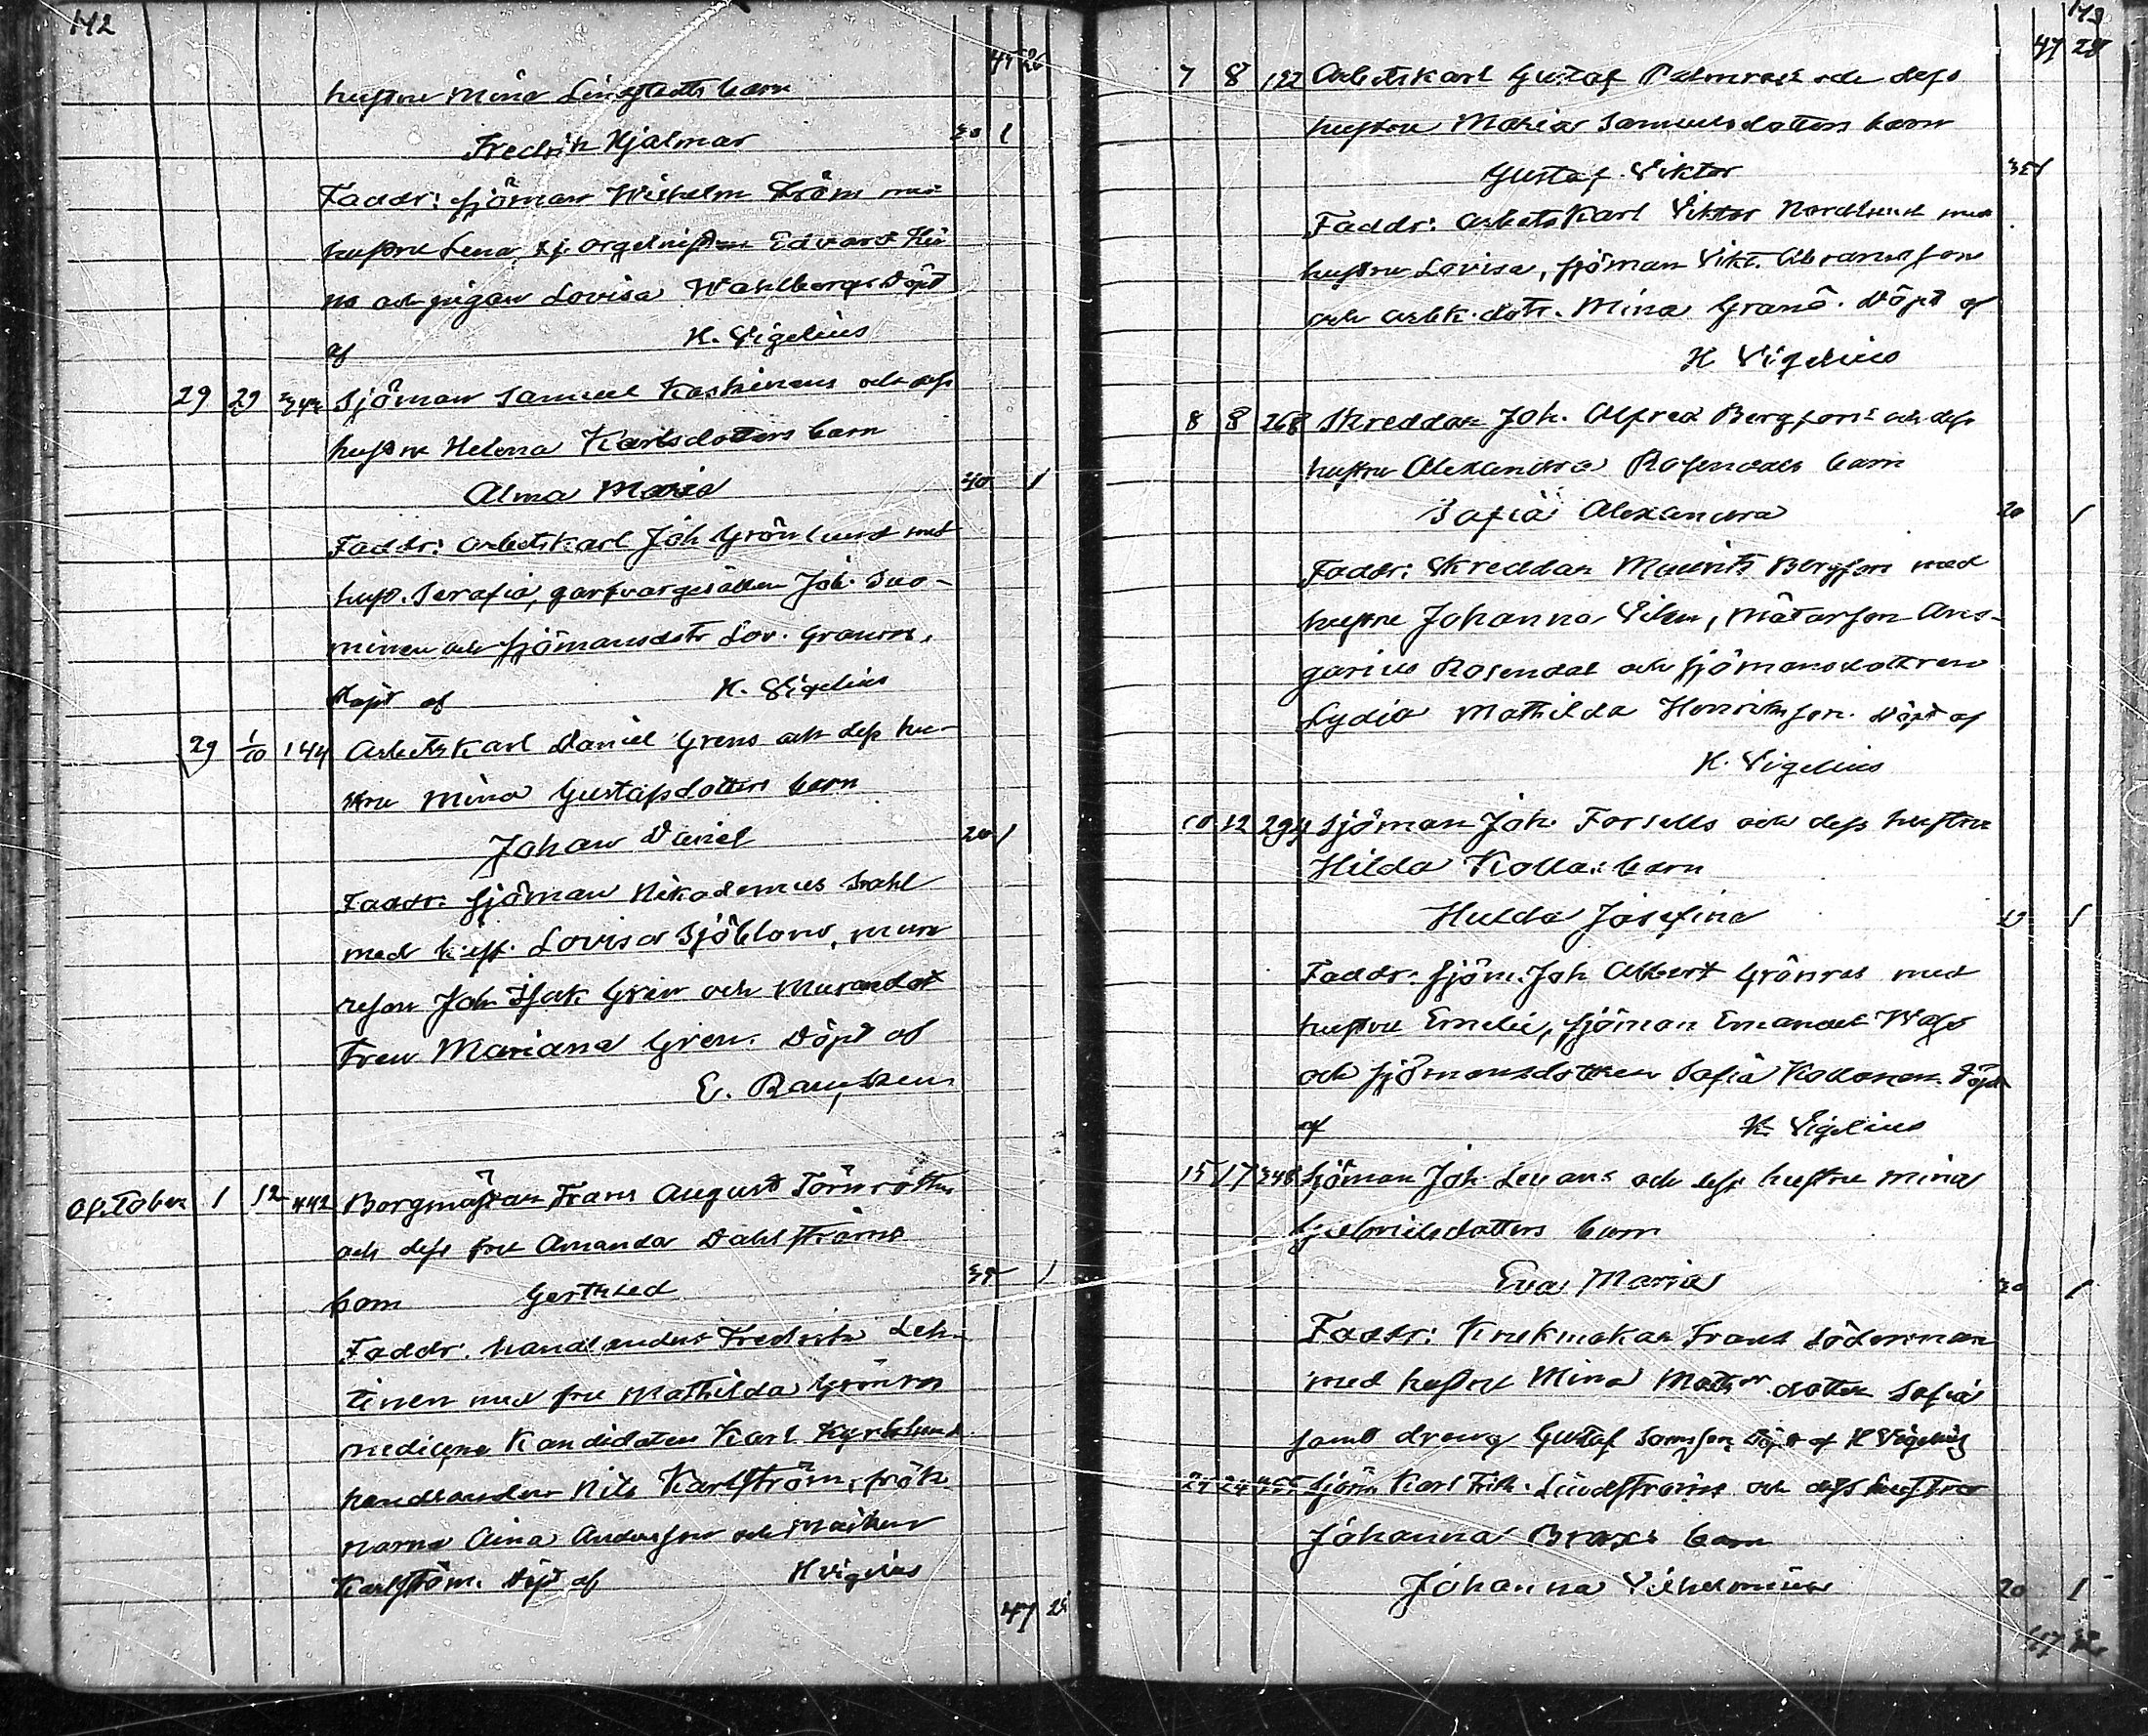 142
45 26
hustru Mina Lindstedts barn
Fredrik Hjalmar 30 1
Faddr: sjöman Wilhelm Ström med
hustru Lena, Edvard
och pigan Lovisa Wahlberg. Döpt
af K. Vigelius
29 29 Sjöman Samuel Koskinens och dess
hustru Helena Karlsdotters barn
Alma Maria 40 1
Faddr: arbetskarl Joh Grönlund med
hust. Serafia, garfvargesällen Joh. Suo-
minen och sjömansdotr Lov. Granroos.
Döpt af K. Vigelius
29 1/10 144 Arbetskarl Daniel Grens och dess hu-
stru Mina Gustafsdotters barn
Johan Daniel 20 1
Faddr: sjöman Nikodemus Dahl
med hust. Lovisa Sjöblom, mura
reson Joh Isak Gren och Muraredot
tren Mariana Gren. Döpt af
E.
October 1 12 442 Borgmästar Frans August Törnroths
och dess fru Amanda Dahlströms
barn Gertrud 35 1
Faddr. handlanden Fredrik Leh-
tinen med fru Mathilda Grönros
medicine Kandidaten Karl
handlanden Nils Karlström, frök
narna Aina Andersson och Maiken
Karlström. Döpt af K Vigelius
47 28
143
47 28
7 8 122 Arbetskarl Gustaf Palmroos och dess
hustru Maria Samuelsdotters barn
Gustaf Viktor 35 1
Faddr: arbetskarl Viktor Nordlund med
hustru Lovisa, sjöman Vikt. Abramsson
och arbk. dotr. Mina Granö. Döpt af
K Vigelius
8 8 268 Skreddar Joh. Alfred Bergfors och dess
hustru Alexandra Rosendals barn
Sofia Alexandra 20 1
Faddr: Skreddar Maurits Bergfors med
hustru Johanna Vilen, Mätarson Ans-
garius Rosendal och sjömansdottren
Lydia Mathilda Henriksson. Döpt af
K. Vigelius
10 12 294 Sjöman Joh Forsells och dess hustru
Hilda Kollas barn
Hulda Josefina 1
Faddr. Sjöm. Joh Albert Grönros med
hustru Emelie, sjöman Emanuel Wass
och sjömansdottren Sofia Kollonen. Döpt
af K Vigelius
15 17 248 Sjöman Joh Levans och dess hustru Mina
Gabrielsdotters barn
Eva Maria 30 1
Faddr: Krukmakar Frans Söderman
med hustru Mina dotter Sofia
samt dreng Gustaf Samsson Döpt af K Vigelius
24 Sjöm Karl Frih. Lindströms och dess hustru
Johanna Braxs barn
Johanna Vilhelmina 20 1